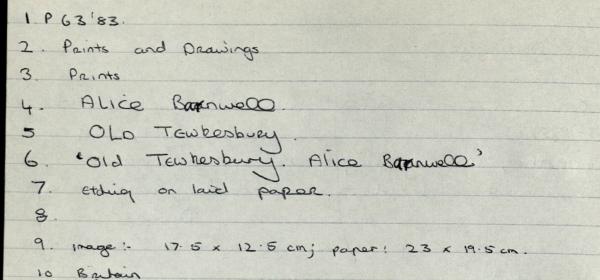 1 P 63'83.
2. Prints and Drawings
3. Prints
4. ALICE Barnwell.
5 OLD TEWKESBURY.
6. 'Old Tewkesbury. Alice Barnwell'
7. Etching on laid paper.
8.
9. image:- 17.5 x 12.5 cm; paper: 23 x 19.5 cm.
10 Britain